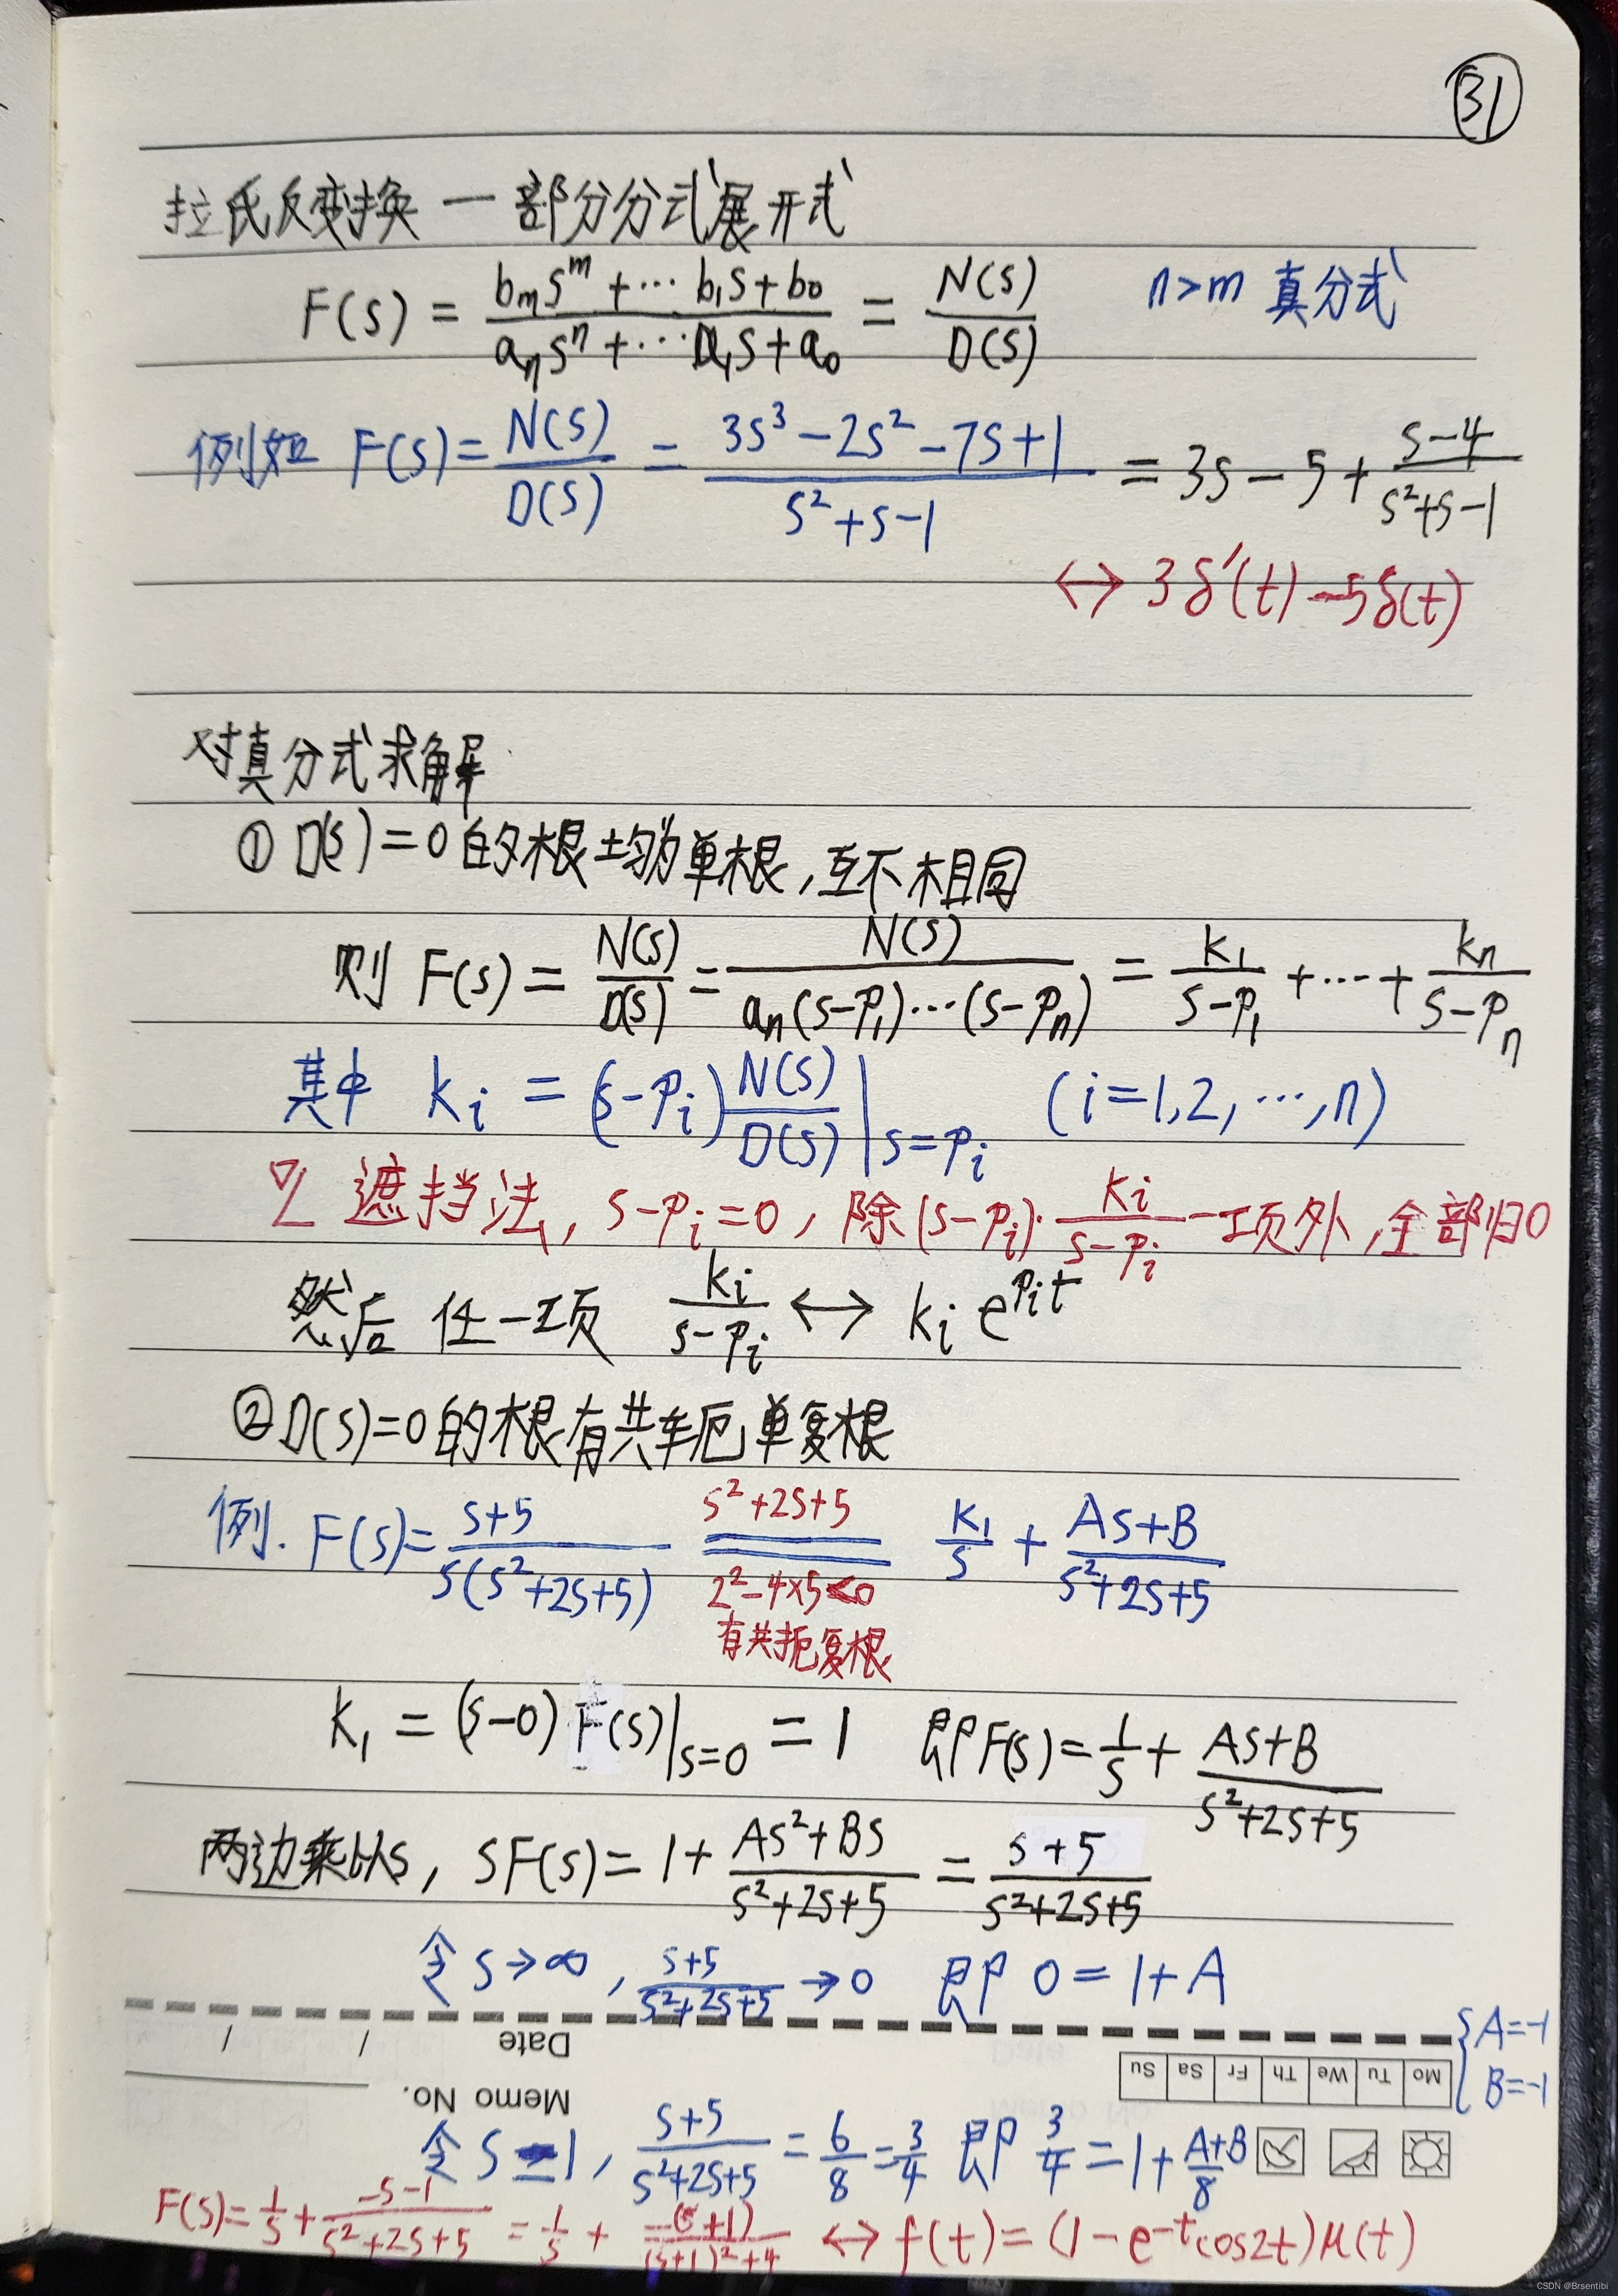 31
拉氏反变换 — 部分分式展开式
F(s) = (bₘsᵐ + ⋯ b₁s + b₀)/(aₙsⁿ + ⋯ a₁s + a₀) = N(s)/D(s) n>m 真分式
例如 F(s) = N(s)/D(s) = (3s³ - 2s² - 7s + 1)/(s² + s - 1) = 3s - 5 + (s-4)/(s²+s-1)
↔ 3δ′(t) - 5δ(t)
对真分式求解
① D(s) = 0 的根均为单根, 互不相同
则 F(s) = N(s)/D(s) = N(s)/(aₙ(s-p₁)⋯(s-pₙ)) = k₁/(s-p₁) + ⋯ + kₙ/(s-pₙ)
其中 kᵢ = (s-pᵢ) N(s)/D(s) |s=pᵢ (i=1,2,⋯,n)
遮挡法, s-pᵢ=0, 除(s-pᵢ)·kᵢ/(s-pᵢ)一项外, 全部归0
然后 任一项 kᵢ/(s-pᵢ) ↔ kᵢ e^(pᵢt)
② D(s)=0 的根有共轭单复根
例. F(s) = (s+5)/(s(s²+2s+5)) = k₁/s + (As+B)/(s²+2s+5)
s²+2s+5
2²-4×5<0
有共扼复根
k₁ = (s-0) F(s)|s=0 = 1 即F(s) = 1/s + (As+B)/(s²+2s+5)
两边乘以s, sF(s) = 1 + (As²+Bs)/(s²+2s+5) = (s+5)/(s²+2s+5)
令 s→∞, (s+5)/(s²+2s+5) → 0 即 0 = 1+A
{ A=-1
B=-1
Date / /
Mo Tu We Th Fr Sa Su
Memo No.
令 s=1, (s+5)/(s²+2s+5) = 6/8 = 3/4 即 3/4 = 1 + (A+B)/8
F(s) = 1/s + (-s-1)/(s²+2s+5) = 1/s + -(s+1)/((s+1)²+4) ↔ f(t) = (1-e^(-t)cos2t)μ(t)
CSDN @Brsentibi